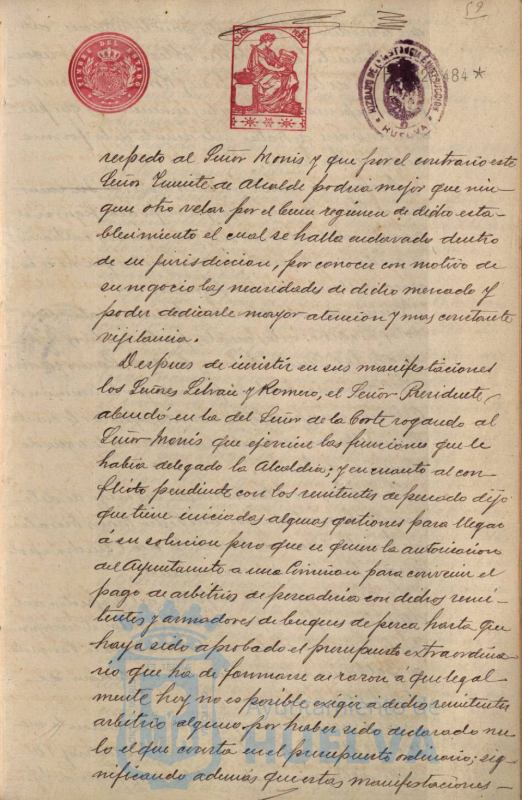 59
TIMBRE DEL ESTADO
JUZGADO DE 1ª INSTANCIA E INSTRUCCION
HUELVA
484*
respecto al Señor Monis y que por el contrario este
Señor Teniente de Alcalde podria mejor que nin-
gun otro velar por el buen regimen de dicho esta-
blecimiento el cual se halla enclavado dentro
de su jurisdiccion, por conocer con motivo de
su negocio las necesidades de dicho mercado y
poder dedicarle mayor atencion y mas constante
vigilancia.
Despues de insistir en sus manifestaciones
los Señores Librán y Romero, el Señor Presidente,
abundó en la del Señor de la Corte rogando al
Señor Monis que ejerciera las funciones que le
habia delegado la Alcaldia; y en cuanto al con-
flicto pendiente con los remitentes de pescado dijo
que tiene iniciadas algunas gestiones para llegar
á su solucion pero que se quiere la autorizacion
del Ayuntamiento a una Comision para convenir el
pago de arbitrios de pescaderia con dichos remi-
tentes y armadores de buques de pesca hasta que
haya sido aprobado el presupuesto extraordina-
rio que ha de formarse en razon á que legal
mente hoy no es posible exigir a dichos remitentes
arbitrio alguno por haber sido declarado nu-
lo el que consta en el presupuesto ordinario; sig-
nificando además que estas manifestaciones-